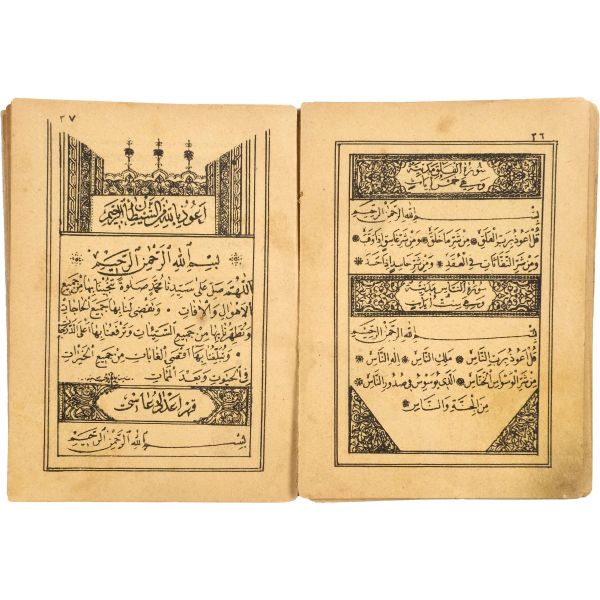 ٣٦
سورة الفلق مدنية
وهي خمس آيات
بِسْمِ اللهِ الرَّحْمٰنِ الرَّحِيمِ
قُلْ اَعُوذُ بِرَبِّ الْفَلَقِ ❋ مِنْ شَرِّ مَا خَلَقَ ❋ وَمِنْ شَرِّ غَاسِقٍ اِذَا وَقَبَ ❋
وَمِنْ شَرِّ النَّفَّاثَاتِ فِي الْعُقَدِ ❋ وَمِنْ شَرِّ حَاسِدٍ اِذَا حَسَدَ ❋
سورة الناس مدنية
وهي ست آيات
بِسْمِ اللهِ الرَّحْمٰنِ الرَّحِيمِ
قُلْ اَعُوذُ بِرَبِّ النَّاسِ ❋ مَلِكِ النَّاسِ ❋ اِلٰهِ النَّاسِ ❋
مِنْ شَرِّ الْوَسْوَاسِ الْخَنَّاسِ ❋ اَلَّذِي يُوَسْوِسُ فِي صُدُورِ النَّاسِ ❋
مِنَ الْجِنَّةِ وَالنَّاسِ ❋
٣٧
اعوذ بالله من الشيطان الرجيم
بِسْمِ اللهِ الرَّحْمٰنِ الرَّحِيمِ
اَللّٰهُمَّ صَلِّ عَلٰى سَيِّدِنَا مُحَمَّدٍ صَلٰوةً تُنْجِينَا بِهَا مِنْ جَمِيعِ
الْاَهْوَالِ وَالْاٰفَاتِ ۰ وَتَقْضِي لَنَا بِهَا جَمِيعَ الْحَاجَاتِ
وَتُطَهِّرُنَا بِهَا مِنْ جَمِيعِ السَّيِّئَاتِ وَتَرْفَعُنَا بِهَا اَعْلَى الدَّرَجَاتِ
۰ وَتُبَلِّغُنَا بِهَا اَقْصَى الْغَايَاتِ مِنْ جَمِيعِ الْخَيْرَاتِ
فِي الْحَيٰوةِ وَبَعْدَ الْمَمَاتِ
بِسْمِ اللهِ الرَّحْمٰنِ الرَّحِيمِ